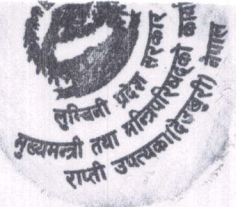 लुम्बिनी प्रदेश सरकार
मुख्यमन्त्री तथा मन्त्रिपरिषद्को कार्या
राप्ती उपत्यका(देउखुरी) नेपाल